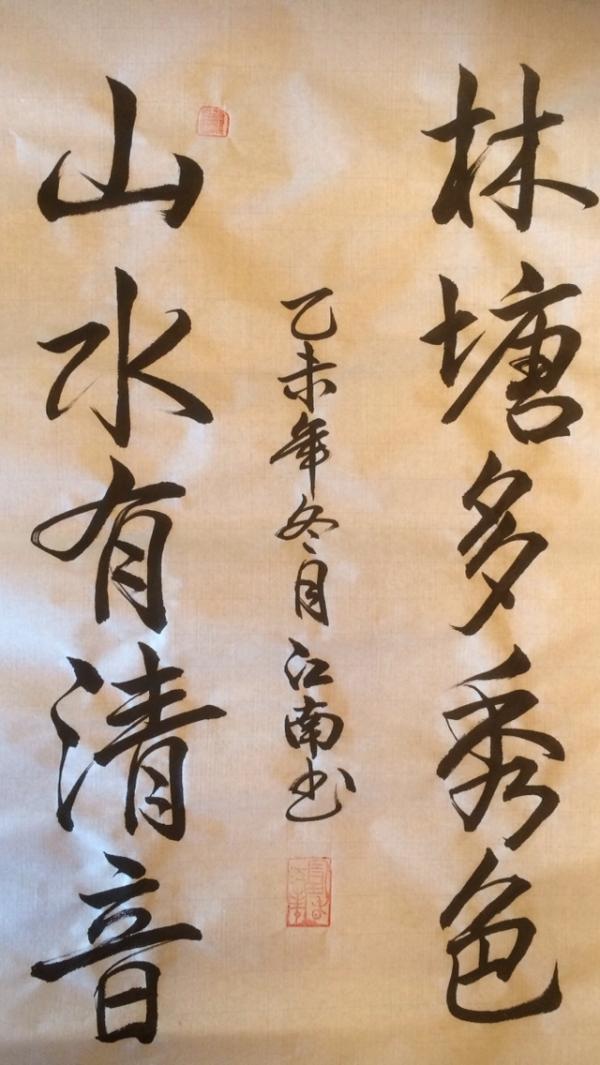 林塘多秀色
山水有清音
乙未年冬月江南书